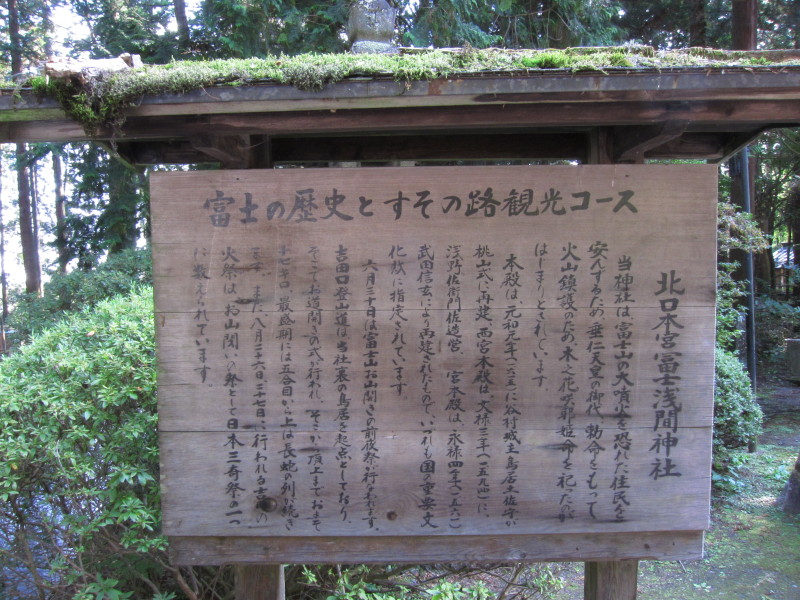 富士の歴史とすその路観光コース
北口本宮冨士浅間神社
当神社は富士山の大噴火を恐れた住民を
安んずるため、垂仁天皇の御代、勅命をもって、
火山鎮護のため、木之花咲耶姫命を祀ったのが
はじまりとされています。
本殿は、元和元年(一六一五)に谷村城主鳥居土佐守が
桃山式に再建、西宮本殿は、文禄三年(一五九四)に、
浅野佐衛門佐造営、宮本殿は、永禄四年(一五六一)
武田信玄により再建されたもので、いづれも国の重要文
化財に指定されています。
六月三十日は富士山お山開きの前夜祭が行われます。
吉田口登山道は当社裏の鳥居を起点としており、
そこでお道開きの式が行われ、そこから頂上まで
キロ 最盛期には五合目から上は長蛇の列が続き
ます。また八月二十六日二十七日に行われる吉田の
火祭は、お山閉いの祭として日本三奇祭の一つ
に数えられています。